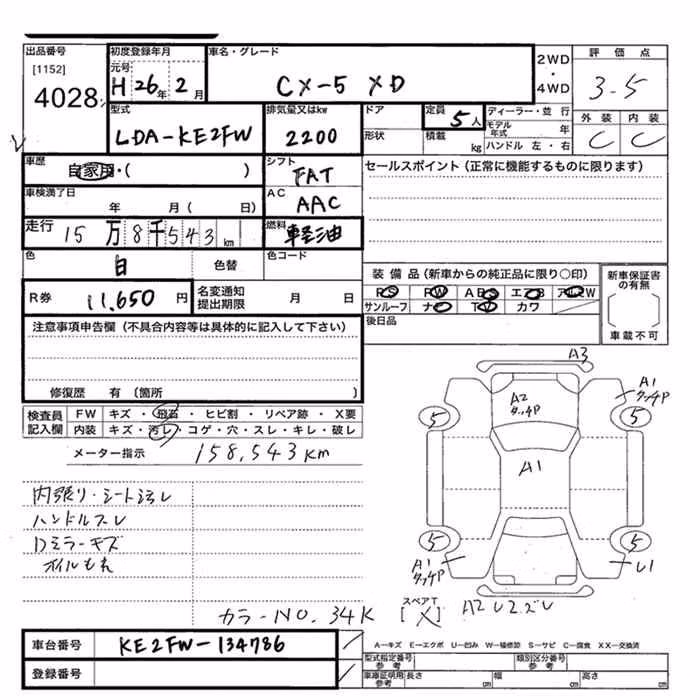 出品番号
[1152]
4028
初度登録年月
元号
H 26年 2月
車名・グレード
CX-5 XD
2WD
・
4WD
評価点
3-5
型式
LDA-KE2FW
排気量又はkw
2200
ドア
形状
定員
5人
積載
kg
ディーラー・並行
モデル年式
年
ハンドル 左・右
外装
内装
C
C
車歴
自家用・( )
シフト
FAT
セールスポイント(正常に機能するものに限ります)
車検満了日
年 月( 日)
AC
AAC
走行
15万8千543km
燃料
軽油
色
白
色替
色コード
装備品(新車からの純正品に限り○印)
PS PW ABS エアB アルミW
サンルーフ ナビ TV カワ
新車保証書の有無
車載不可
R券
11,650円
名変通知
提出期限
月 日
後日品
注意事項申告欄(不具合内容等は具体的に記入して下さい)
修復歴 有(箇所 )
検査員
記入欄
FW キズ・飛石・ヒビ割・リペア跡・X要
内装 キズ・汚レ・コゲ・穴・スレ・キレ・破レ
メーター指示 158,543km
内張り・シート汚レ
ハンドルスレ
Dミラーキズ
オイルもれ
カラーNO. 34K
A3
A2
タッチP
A1
タッチP
5
5
A1
5
5
A1
タッチP
U1
スペアT
[X]
A2 U2ズレ
車台番号
KE2FW-134786
登録番号
A-キズ E-エクボ U-凹み W-補修跡 S-サビ C-腐食 XX-交換済
型式指定番号
参考
類別区分番号
参考
車庫証明用
参考
長さ
cm
幅
cm
高さ
cm